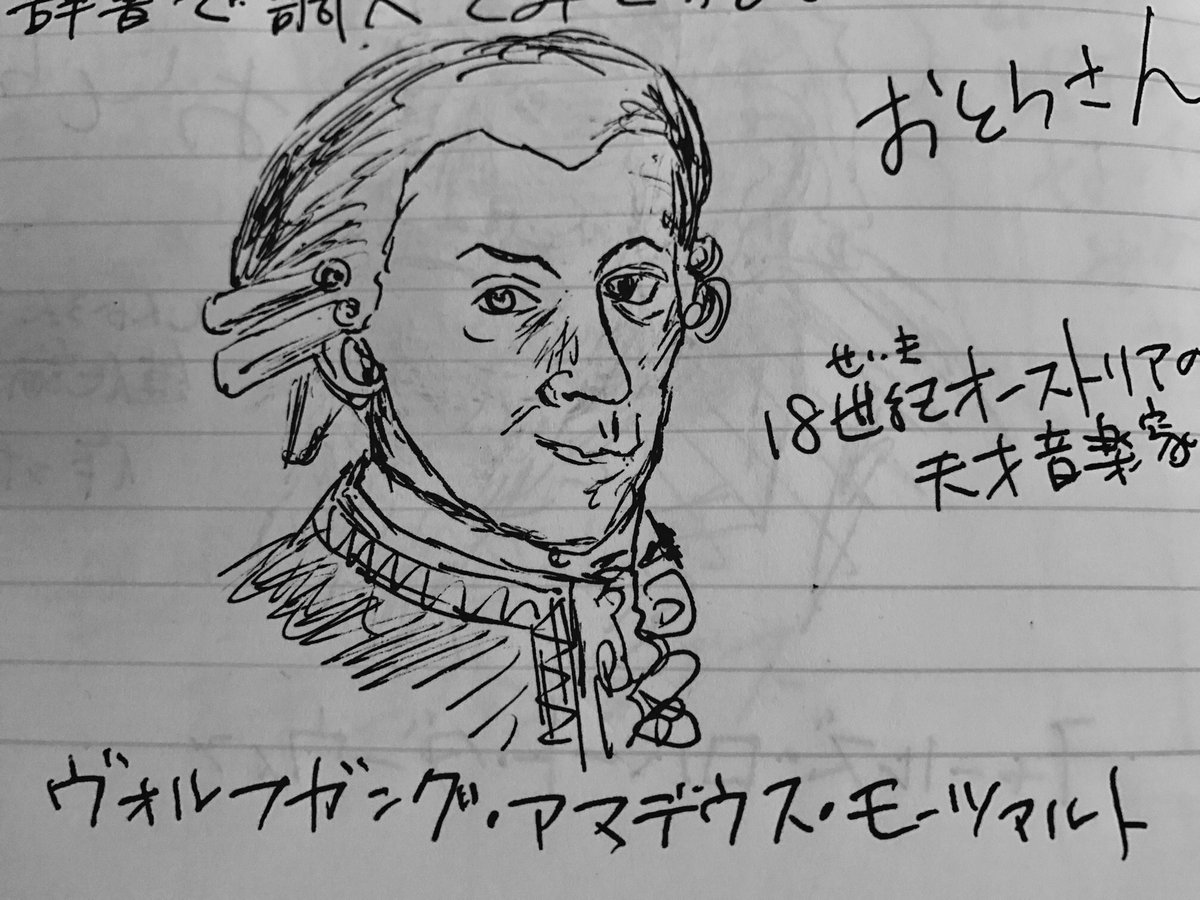 辞書で調べてみてね。
おとらさん
せいき
18世紀オーストリアの
天才音楽家
ヴォルフガング・アマデウス・モーツァルト